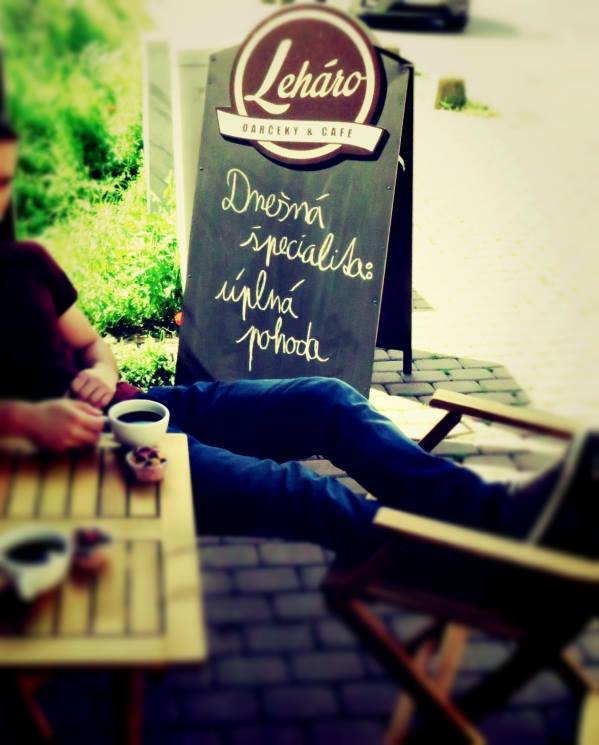 Leháro
DARČEKY & CAFE
Dnešná
špecialita:
úplná
pohoda